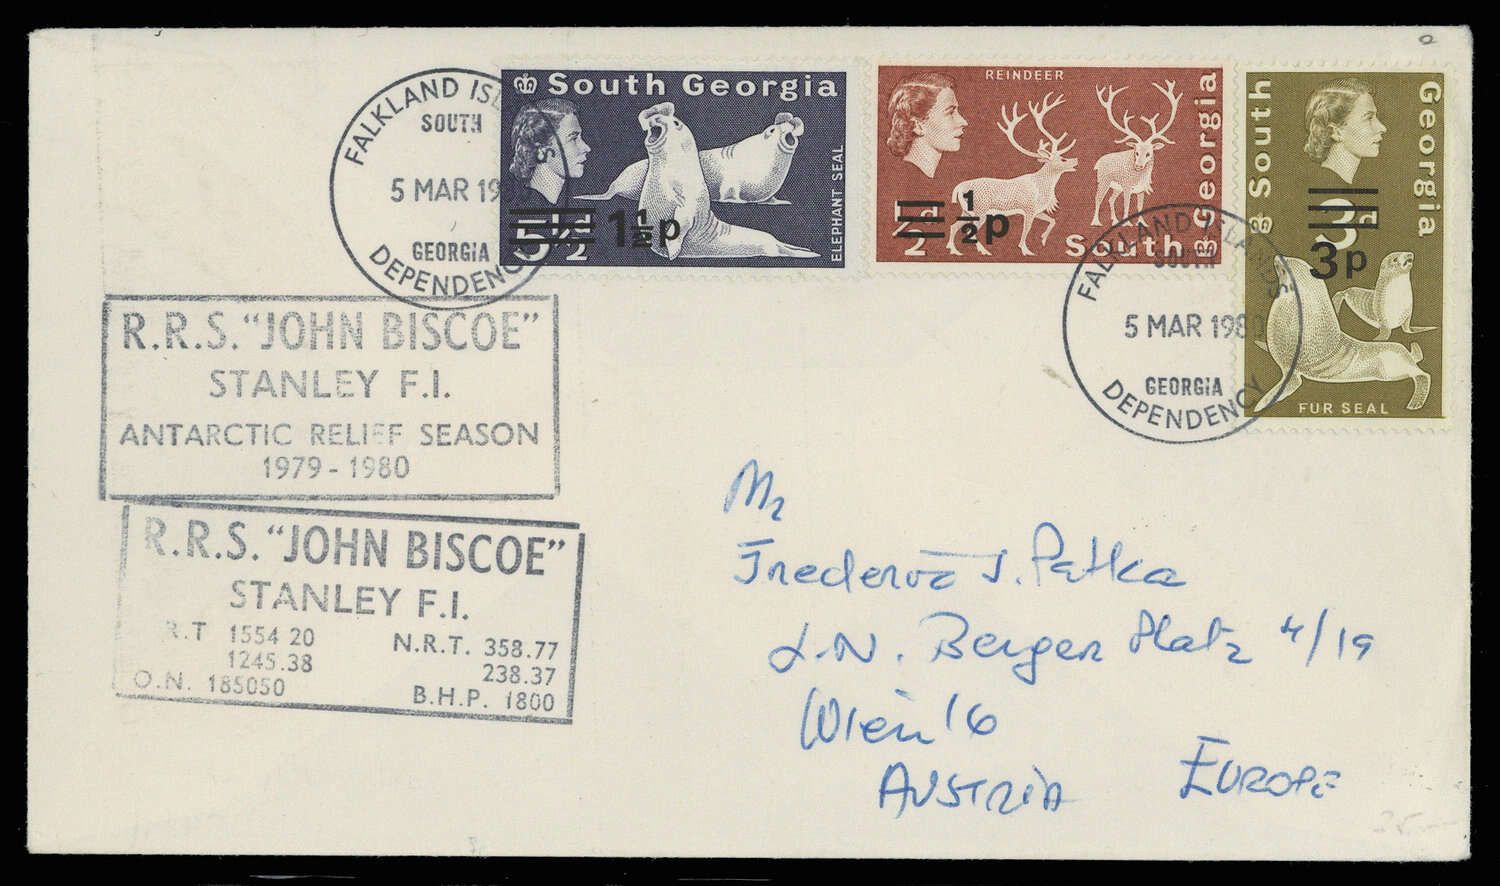 FALKLAND ISL
SOUTH
5 MAR 19
GEORGIA
DEPENDENC
South Georgia
ELEPHANT SEAL
5½d 1½p
REINDEER
South Georgia
½d ½p
South Georgia
3d
3p
FUR SEAL
FALKLAND ISLANDS
SOUTH
5 MAR 1980
GEORGIA
DEPENDENCY
R.R.S. "JOHN BISCOE"
STANLEY F.I.
ANTARCTIC RELIEF SEASON
1979 - 1980
R.R.S. "JOHN BISCOE"
STANLEY F.I.
R.T 1554 20 N.R.T. 358.77
1245.38 238.37
O.N. 185050 B.H.P. 1800
Mr
J. Patka
L.N. Berger Platz 4/19
Wien 16
AUSTRIA EUROPE